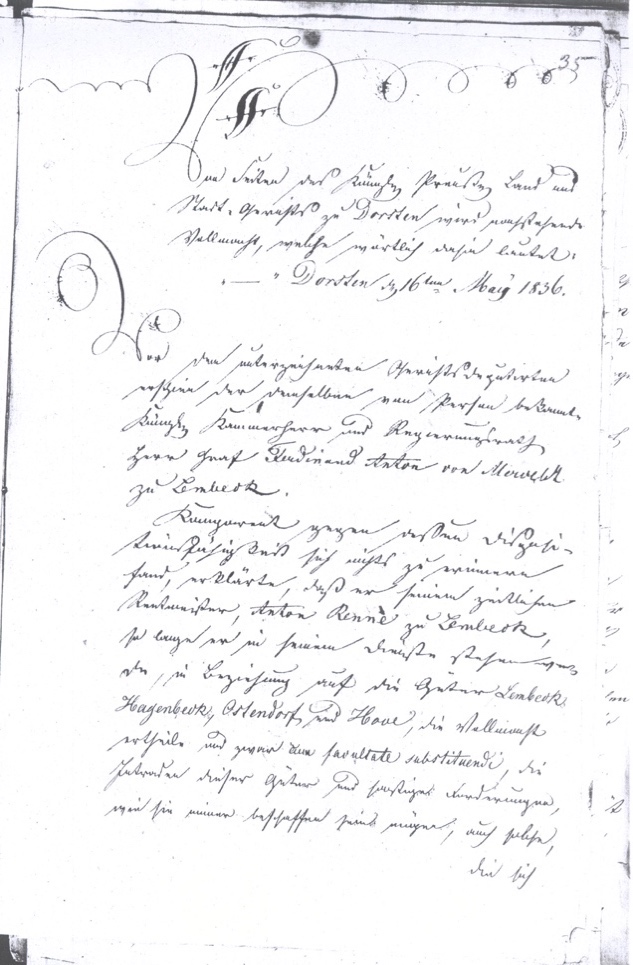 35
Von Seiten des Königl. Preuß. Land und
Stadt-Gerichts zu Dorsten wird nachstehende
Vollmacht, welche wörtlich dahin lautet:
"— " Dorsten d. 16ten May 1836.
Vor dem unterzeichneten Gerichtsdeputirten
erschien der demselben von Person bekannte
Königl. Kammerherr und Regierungsrath
Herr Graf Ferdinand Anton von Merveldt
zu Lembeck.
Komparent gegen dessen Disposi-
tionsfähigkeit sich nichts zu erinnern
fand, erklärte, daß er seinem zeitlichen
Rentmeister, Anton Renné zu Lembeck,
so lange er in seinem Dienste stehen wer-
de, in Beziehung auf die Güter Lembeck,
Hagenbeck, Ostendorf und Hove, die Vollmacht
ertheile und zwar cum facultate substituendi, die
Intraden dieser Güter und sonstigen Forderungen,
wie sie immer beschaffen sein mögen, auch solche,
die sich